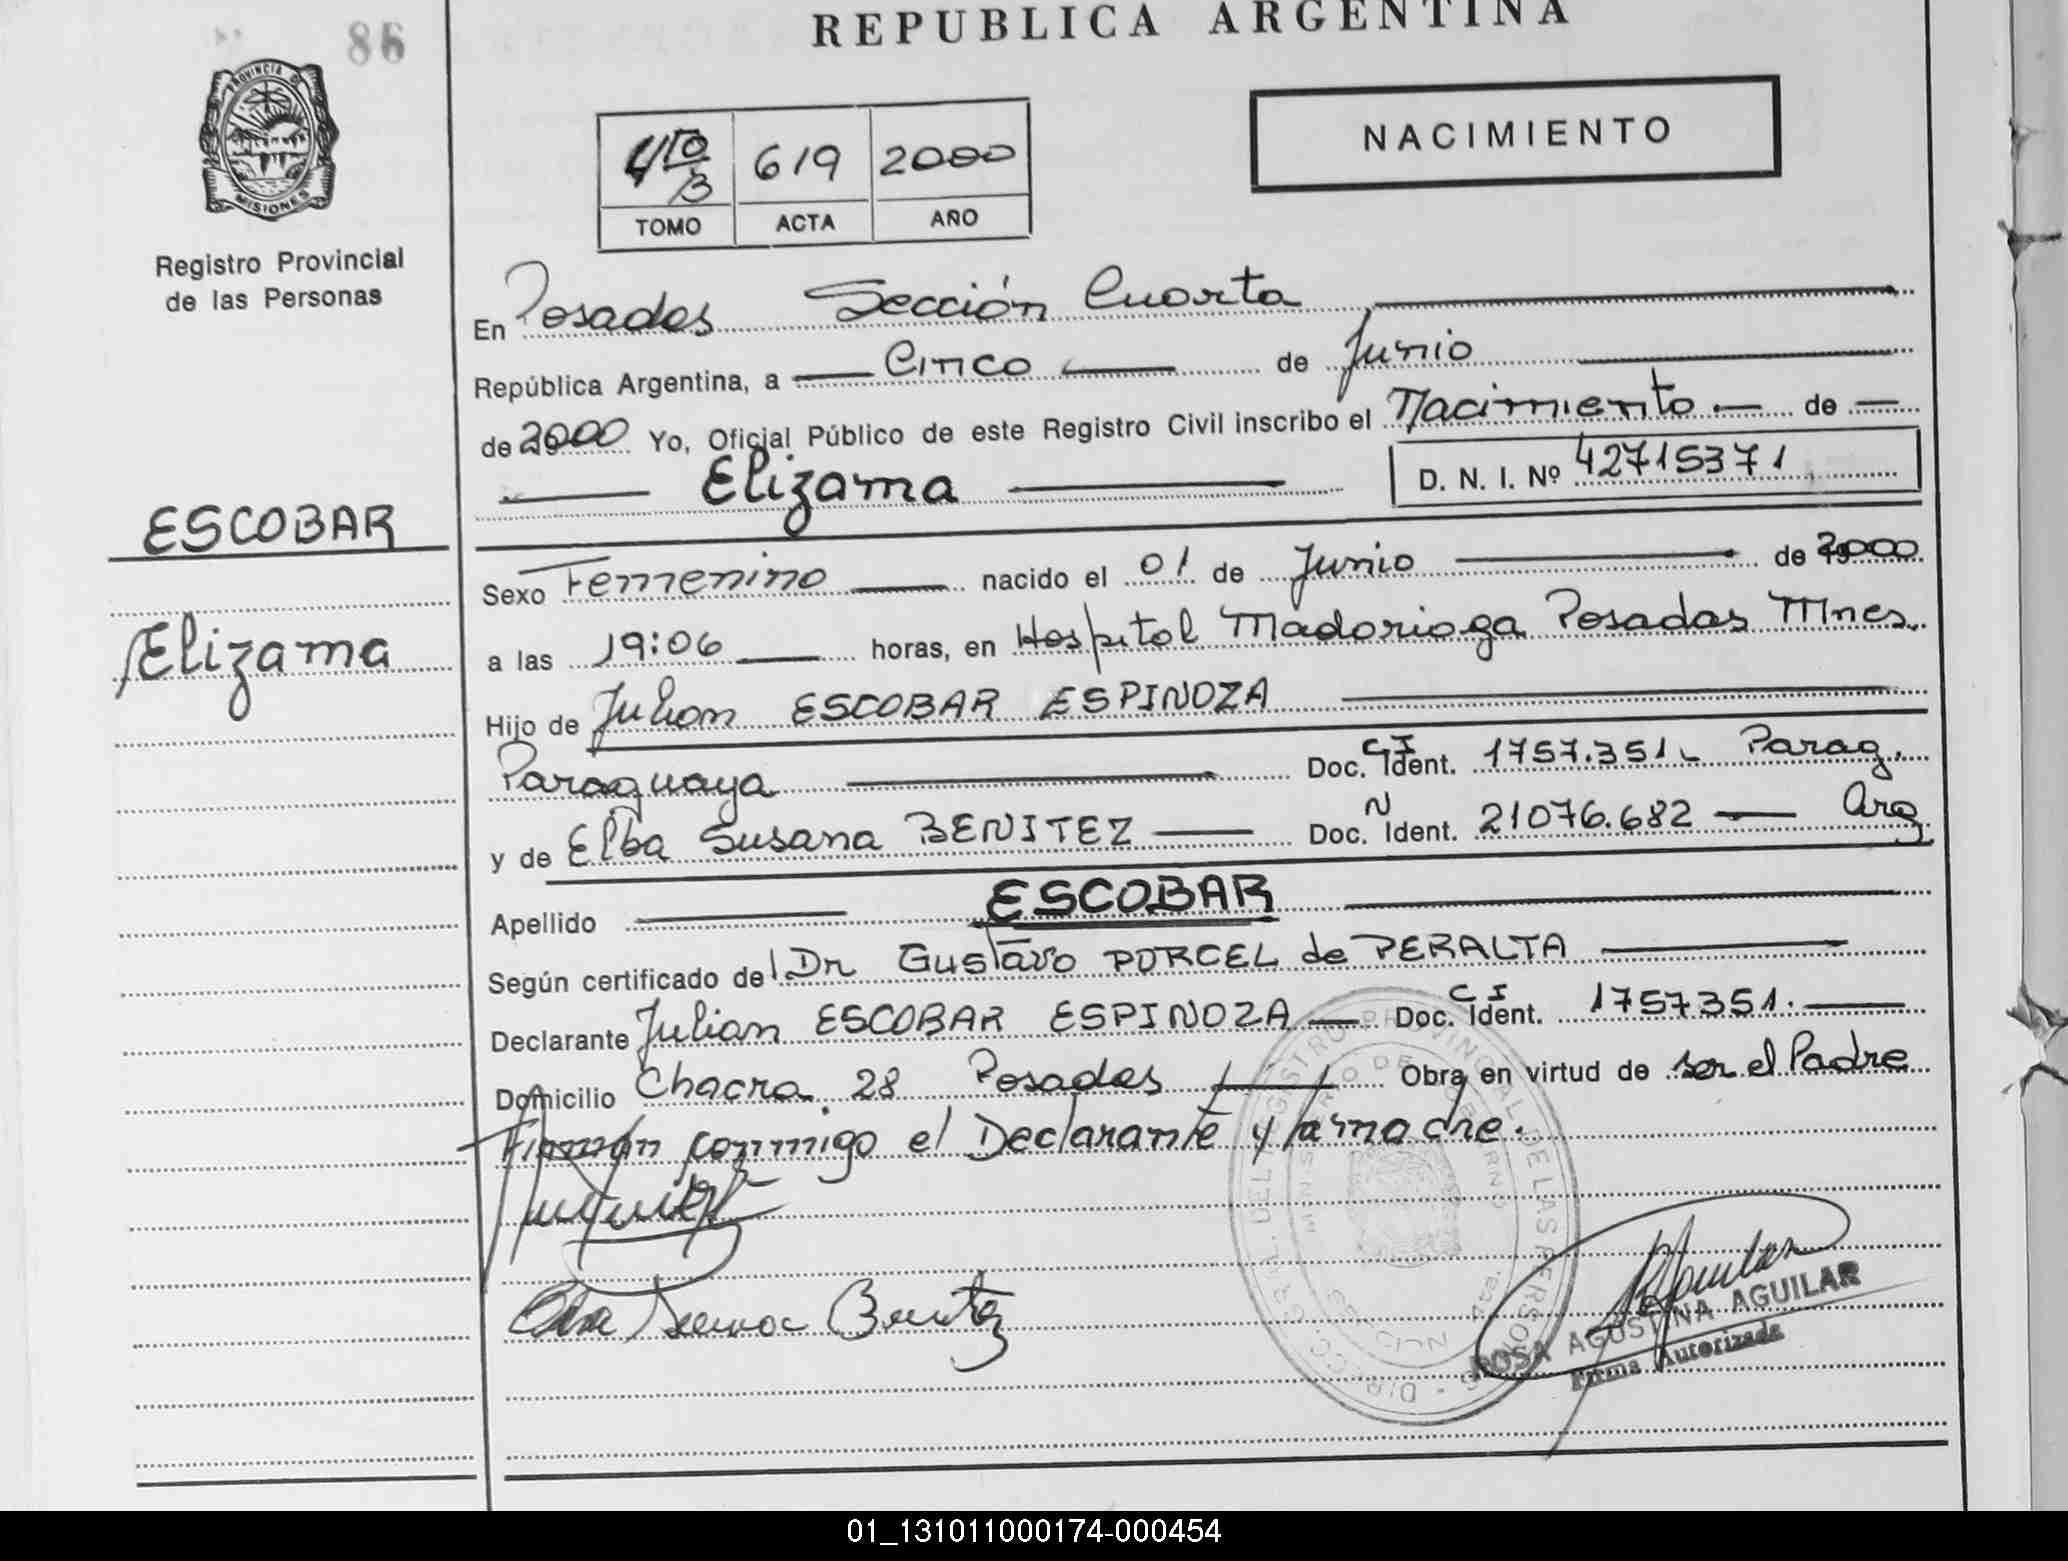 86
REPUBLICA ARGENTINA
PROVINCIA DE
MISIONES
NACIMIENTO
4to/3 619 2000
TOMO ACTA AÑO
Registro Provincial
de las Personas
En Posadas Sección Cuarta
República Argentina, a Cinco de Junio
de 2000 Yo, Oficial Público de este Registro Civil inscribo el Nacimiento de
Elizama D. N. I. Nº 42715371
ESCOBAR
Elizama
Sexo Femenino nacido el 01 de Junio de 2000
a las 19:06 horas, en Hospital Madariaga Posadas Mnes.
Hijo de Julian ESCOBAR ESPINOZA
Paraguaya Doc. CI Ident. 1757.351 Parag.
y de Elba Susana BENITEZ Doc. N Ident. 21076.682 Arg
Apellido ESCOBAR
Según certificado de Dr Gustavo PORCEL de PERALTA
Declarante Julian ESCOBAR ESPINOZA Doc. CI Ident. 1757351.
Domicilio Chacra 28 Posadas Obra en virtud de ser el Padre
Firman conmigo el Declarante y la madre.
Elba Susana Benitez
ROSA AGUSTINA AGUILAR
Firma Autorizada
01_131011000174-000454